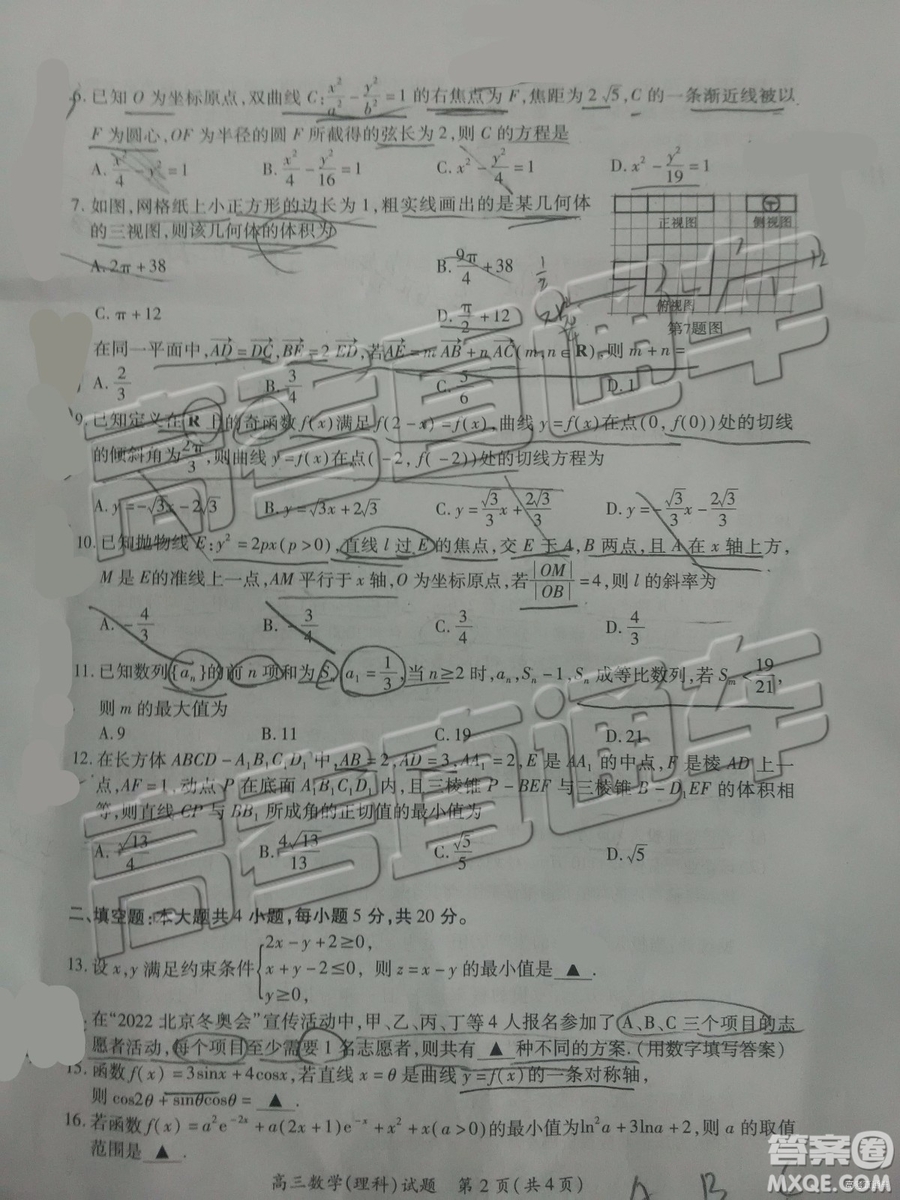 6. 已知 O 为坐标原点,双曲线 C: x²/a² - y²/b² = 1 的右焦点为 F,焦距为 2√5, C 的一条渐近线被以
F 为圆心,OF 为半径的圆 F 所截得的弦长为 2,则 C 的方程是
A. x²/4 - y² = 1 B. x²/4 - y²/16 = 1 C. x² - y²/4 = 1 D. x² - y²/19 = 1
7. 如图,网格纸上小正方形的边长为 1,粗实线画出的是某几何体
的三视图,则该几何体的体积为
正视图 侧视图
A. 2π+38 B. 9π/4+38
俯视图
C. π+12 D. π/2+12
第7题图
在同一平面中,AD=DC,BE=2ED,若AE=mAB+nAC(m,n∈R),则 m+n=
A. 2/3 B. 3/4 C. 5/6 D. 1
9. 已知定义在 R 上的奇函数 f(x)满足 f(2-x)=f(x),曲线 y=f(x)在点(0,f(0))处的切线
的倾斜角为2π/3,则曲线 y=f(x)在点(-2,f(-2))处的切线方程为
A. y=-√3x-2√3 B. y=√3x+2√3 C. y=√3/3x+2√3/3 D. y=-√3/3x-2√3/3
10. 已知抛物线 E:y²=2px(p>0),直线 l 过 E 的焦点,交 E 于 A,B 两点,且 A 在 x 轴上方,
M 是 E的准线上一点,AM 平行于 x 轴,O 为坐标原点,若|OM|/|OB|=4,则 l 的斜率为
A. -4/3 B. -3/4 C. 3/4 D. 4/3
11. 已知数列{aₙ}的前 n 项和为 Sₙ, a₁=1/3,当 n≥2 时,aₙ,Sₙ-1,Sₙ 成等比数列,若 Sₘ<19/21,
则 m 的最大值为
A. 9 B. 11 C. 19 D. 21
12. 在长方体 ABCD-A₁B₁C₁D₁ 中,AB=2,AD=3,AA₁=2,E 是 AA₁ 的中点,F 是棱 AD 上一
点,AF=1,动点 P 在底面 A₁B₁C₁D₁ 内,且三棱锥 P-BEF 与三棱锥 B-D₁EF 的体积相
等,则直线 CP 与 BB₁ 所成角的正切值的最小值为
A. √13/4 B. 4√13/13 C. √5/5 D. √5
二、填空题:本大题共 4 小题,每小题 5 分,共 20 分。
13. 设 x,y 满足约束条件{2x-y+2≥0, x+y-2≤0, y≥0, 则 z=x-y 的最小值是 ▲ .
在“2022 北京冬奥会”宣传活动中,甲、乙、丙、丁等 4 人报名参加了 A、B、C 三个项目的志
愿者活动,每个项目至少需要 1 名志愿者,则共有 ▲ 种不同的方案.(用数字填写答案)
15. 函数 f(x)=3sinx+4cosx,若直线 x=θ 是曲线 y=f(x)的一条对称轴,
则 cos2θ+sinθcosθ= ▲ .
16. 若函数 f(x)=a²e⁻²ˣ+a(2x+1)e⁻ˣ+x(a>0)的最小值为ln²a+3lna+2,则 a 的取值
范围是 ▲ .
高三数学(理科)试题 第 2 页(共 4 页)
A B
高考直通车
高考直通车
答案圈
MXQE.COM